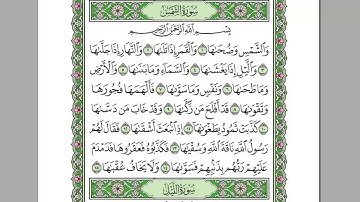 سُورَةُ الشَّمْسِ
بِسْمِ اللَّهِ الرَّحْمَٰنِ الرَّحِيمِ
وَالشَّمْسِ وَضُحَىٰهَا ١ وَالْقَمَرِ إِذَا تَلَىٰهَا ٢ وَالنَّهَارِ إِذَا جَلَّىٰهَا
٣ وَالَّيْلِ إِذَا يَغْشَىٰهَا ٤ وَالسَّمَاءِ وَمَا بَنَىٰهَا ٥ وَالْأَرْضِ
وَمَا طَحَىٰهَا ٦ وَنَفْسٍ وَمَا سَوَّىٰهَا ٧ فَأَلْهَمَهَا فُجُورَهَا
وَتَقْوَىٰهَا ٨ قَدْ أَفْلَحَ مَن زَكَّىٰهَا ٩ وَقَدْ خَابَ مَن دَسَّىٰهَا
١٠ كَذَّبَتْ ثَمُودُ بِطَغْوَىٰهَا ١١ إِذِ انبَعَثَ أَشْقَىٰهَا ١٢ فَقَالَ لَهُمْ
رَسُولُ اللَّهِ نَاقَةَ اللَّهِ وَسُقْيَىٰهَا ١٣ فَكَذَّبُوهُ فَعَقَرُوهَا فَدَمْدَمَ
عَلَيْهِمْ رَبُّهُم بِذَنبِهِمْ فَسَوَّىٰهَا ١٤ وَلَا يَخَافُ عُقْبَىٰهَا ١٥
سُورَةُ اللَّيْلِ